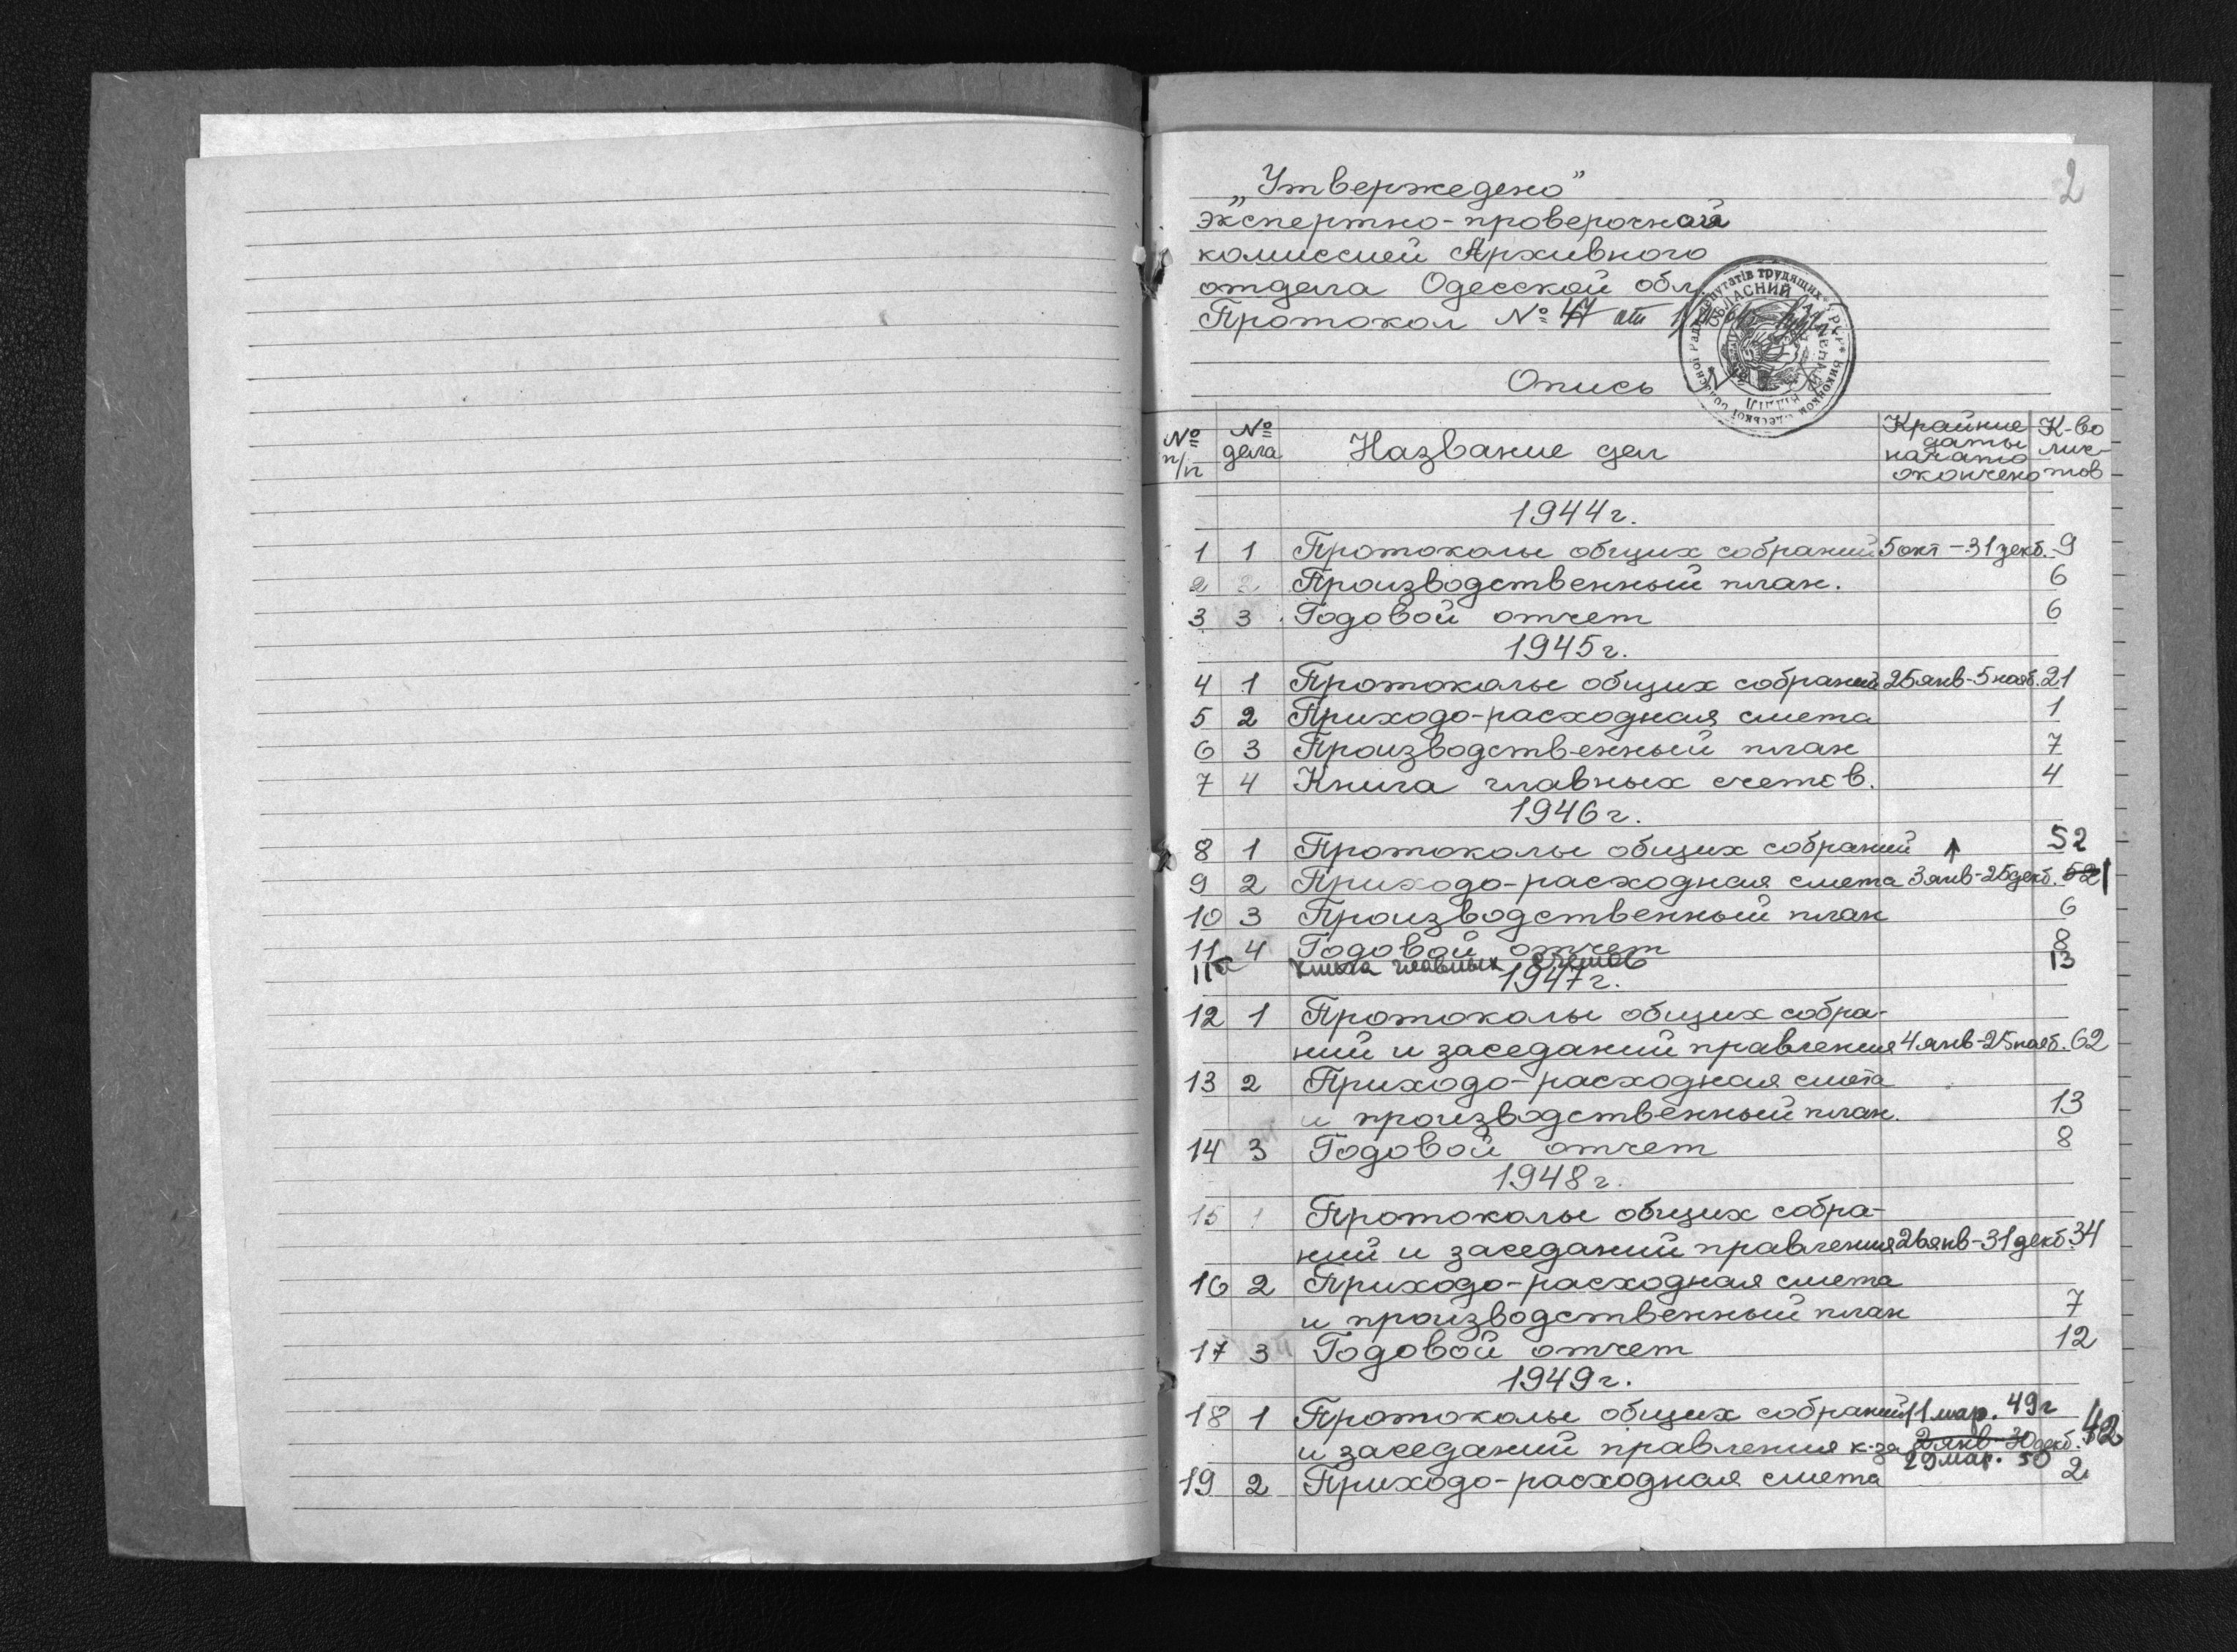 2
„Утверждено"
экспертно-проверочной
комиссией Архивного
отдела Одесской обл.
Протокол № 47 от
ОБЛАСНИЙ
депутатів трудящих
Опись
№ п/п № дела Название дел Крайние даты начато окончено К-во лис-тов
1944 г.
1 1 Протоколы общих собраний 5 окт - 31 декб. 9
2 2 Производственный план. 6
3 3 Годовой отчет 6
1945 г.
4 1 Протоколы общих собраний 25 янв - 5 нояб. 21
5 2 Приходо-расходная смета 1
6 3 Производственный план 7
7 4 Книга главных счетов. 4
1946 г.
8 1 Протоколы общих собраний ↑ 52
9 2 Приходо-расходная смета 3 янв - 25 декб. 52 1
10 3 Производственный план 6
11 4 Годовой отчет 8
11а Книга главных счетов 13
1947 г.
12 1 Протоколы общих собра-
ний и заседаний правления 4 янв - 25 нояб. 62
13 2 Приходо-расходная смета
и производственный план. 13
14 3 Годовой отчет 8
1948 г.
15 1 Протоколы общих собра-
ний и заседаний правления 26 янв - 31 декб. 34
16 2 Приходо-расходная смета
и производственный план 7
17 3 Годовой отчет 12
1949 г.
18 1 Протоколы общих собраний 11 мар. 49 г
и заседаний правления к-за 2 янв - 30 декб. 42
29 мар. 50
19 2 Приходо-расходная смета 2